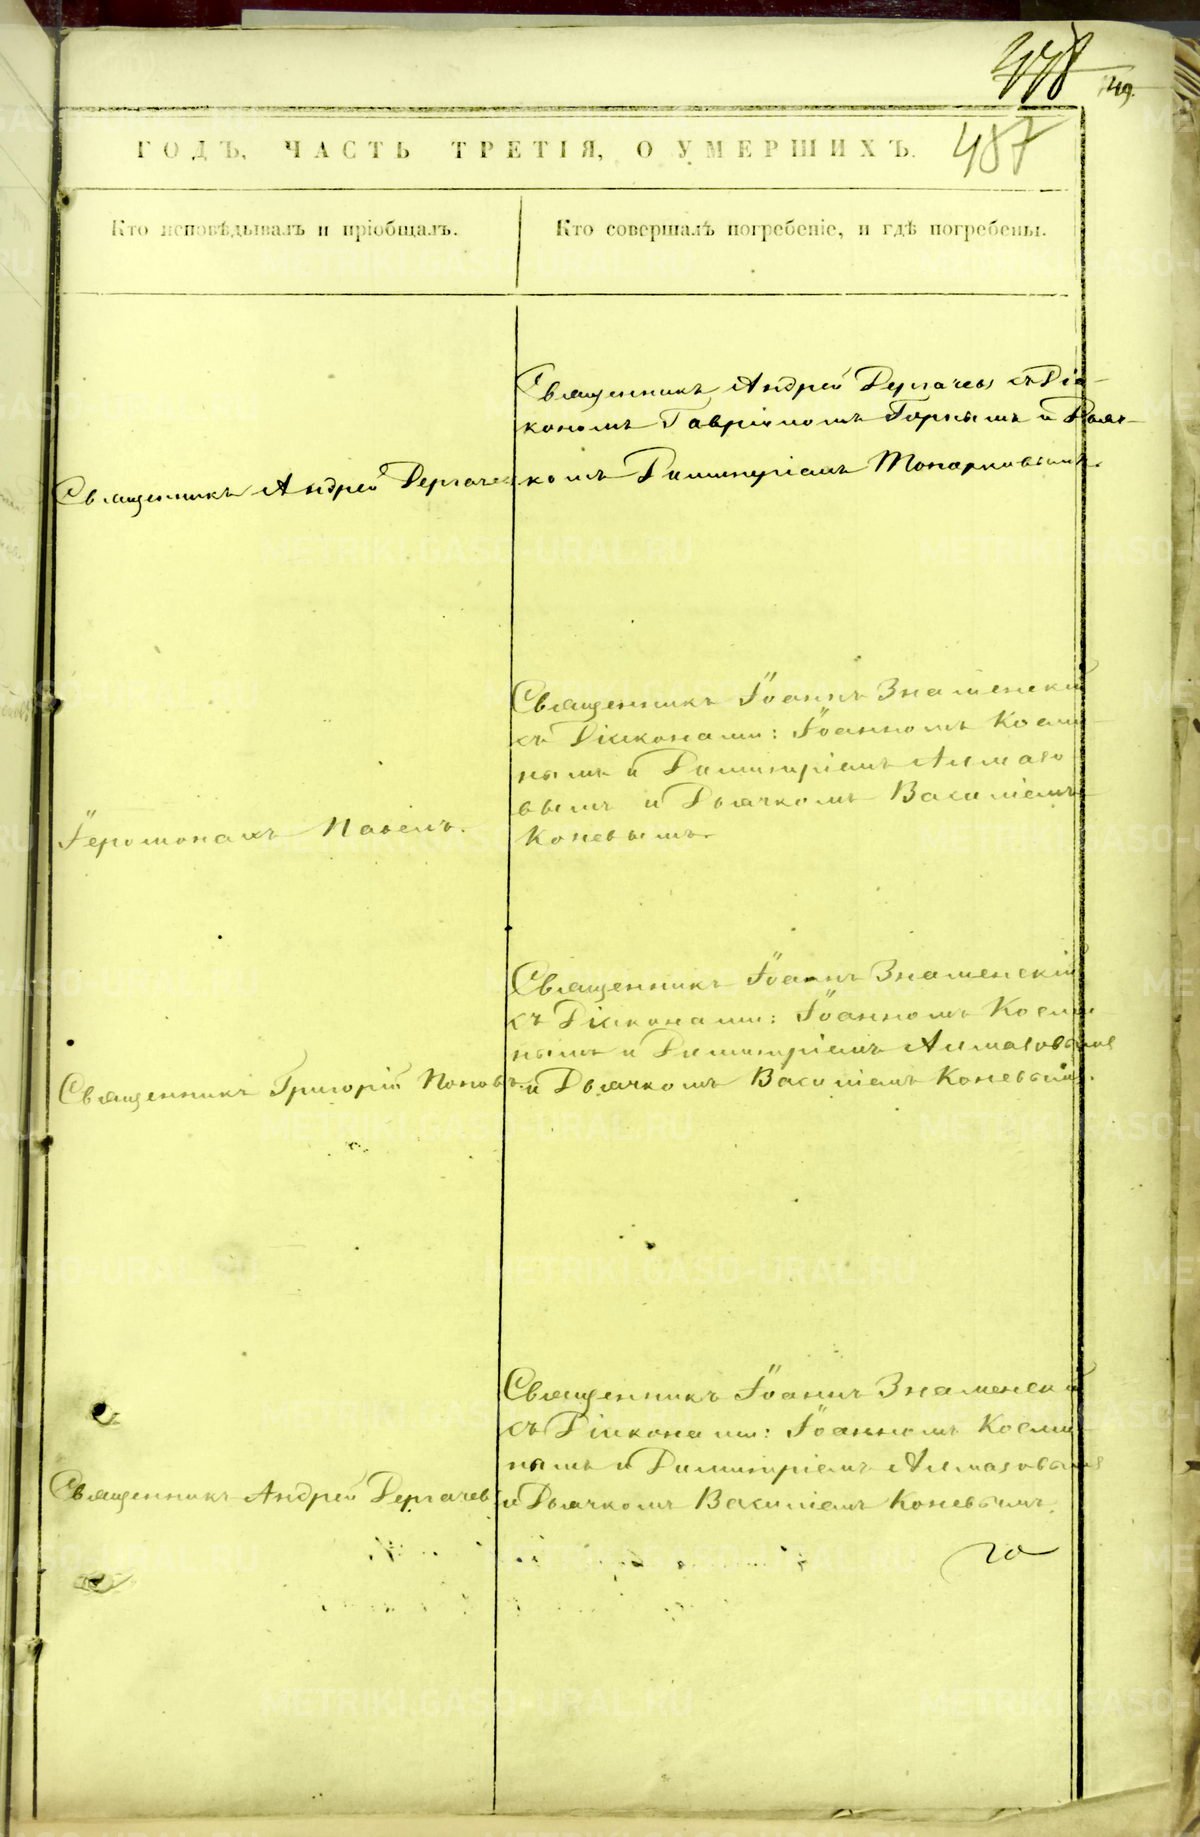 478
149
487
ГОДЪ, ЧАСТЬ ТРЕТІЯ, О УМЕРШИХЪ.
Кто исповѣдывалъ и пріобщалъ.
Кто совершалъ погребеніе, и гдѣ погребены.
Священникъ Андрей Дергачевъ съ Діа-
кономъ Гавріиломъ Горнымъ и Дьяч-
Священникъ Андрей Дергачевъ
комъ Димитріемъ Топорковымъ.
Священникъ Іоаннъ Знаменскій
съ Діаконами: Іоанномъ Косми-
нымъ и Димитріемъ Алмазо-
вымъ и Дьячкомъ Василіемъ
Іеромонахъ Павелъ.
Коневымъ.
Священникъ Іоаннъ Знаменскій
съ Діаконами: Іоанномъ Косми-
нымъ и Димитріемъ Алмазовымъ
Священникъ Григорій Поповъ.
и Дьячкомъ Василіемъ Коневымъ.
Священникъ Іоаннъ Знаменскій
съ Діаконами: Іоанномъ Косми-
нымъ и Димитріемъ Алмазовымъ
Священникъ Андрей Дергачевъ
и Дьячкомъ Василіемъ Коневымъ.
METRIKI.GASO-URAL.RU